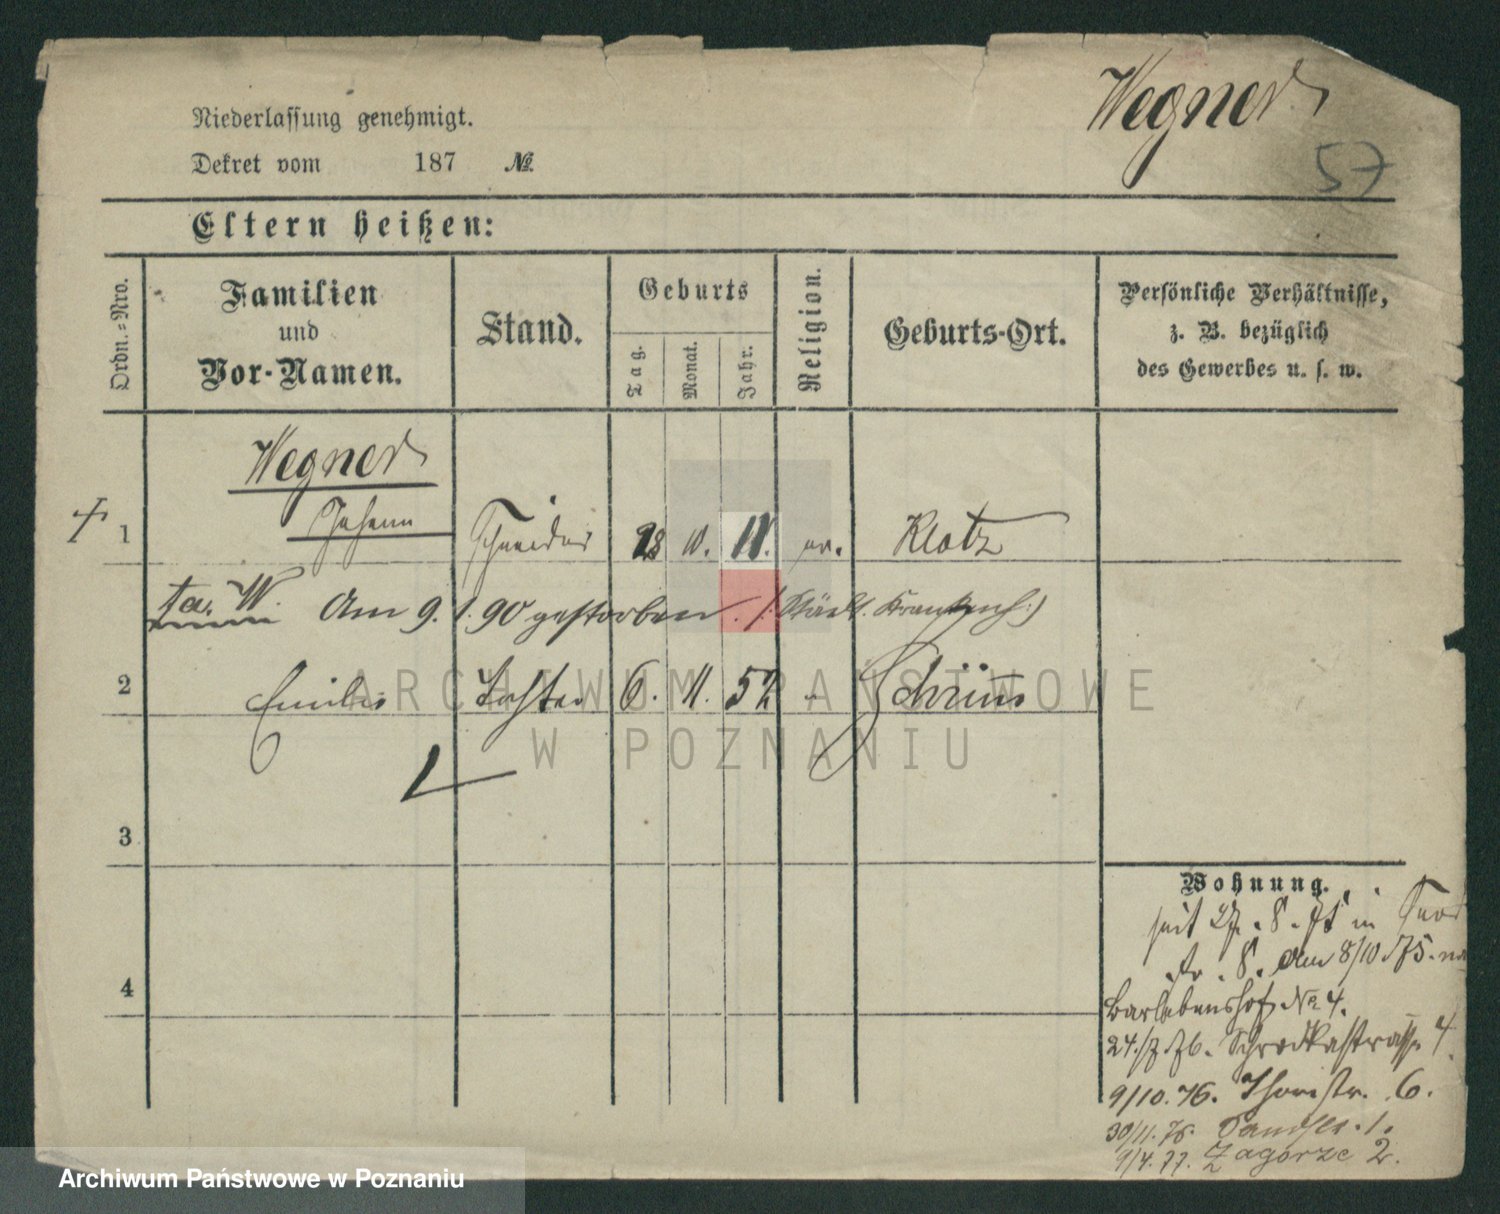 Wegner
57
Niederlassung genehmigt.
Dekret vom 187 №
Eltern heißen:
Ordn.-Nro.
Familien
und
Vor-Namen.
Stand.
Geburts
Tag.
Monat.
Jahr.
Religion.
Geburts-Ort.
Persönliche Verhältnisse,
z. B. bezüglich
des Gewerbes u. s. w.
Wegner
1 Johann Schneider 28 10. ev. Klotz
W. Am 9. 1. 90 gestorben. /: Städt. Krankenh:)
2 Emilie Tochter 6. 11. 52 - Schrimm
3
4
Wohnung.
seit 27. 8. 75 in
8. Am 8/10 75.
Barlebenshof No 4.
24./7 76. Schrodkastrasse 4
9/10. 76. Thorstr. 6.
30/11. 76. Sandstr. 1.
9/4. 77. Zagorze 2.
ARCHIWUM PAŃSTWOWE
W POZNANIU
Archiwum Państwowe w Poznaniu